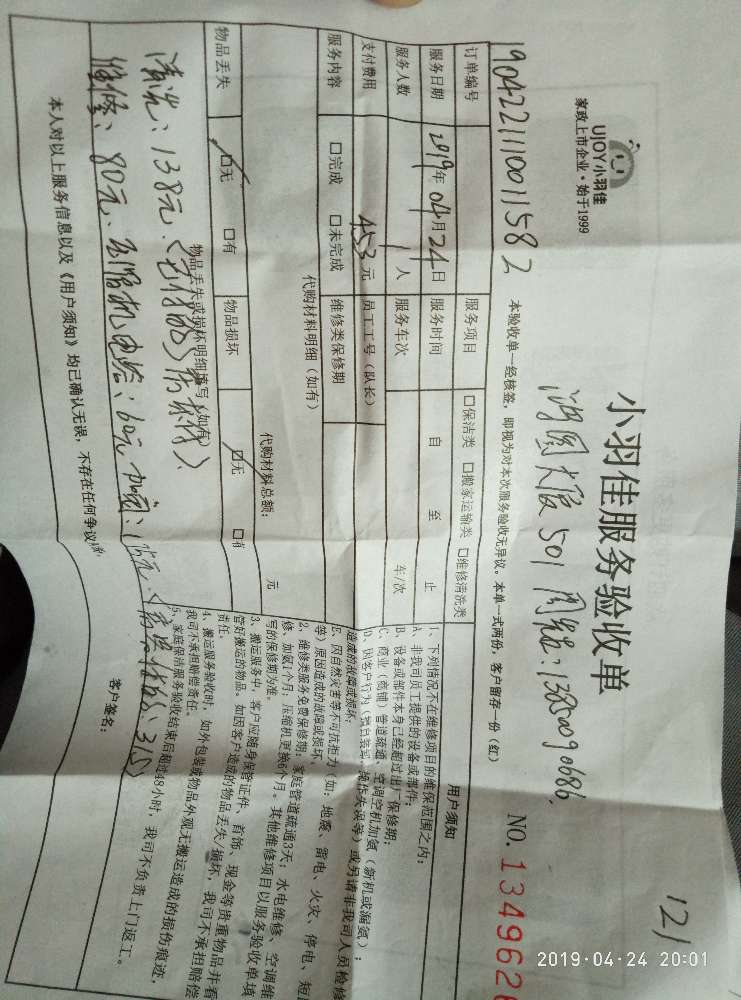 UJOY小羽佳
家政上市企业·始于1999
小羽佳服务验收单
121
NO. 134962
190422111001158 2
501
本验收单一经核签，即视为对本次服务验收无异议。本单一式两份，客户留存一份（红）
订单编号 服务项目 □保洁类 □搬家运输类 □维修清洗类
服务日期 2019年04月24日 服务时间 自 至 止
服务人数 1人 服务车次 车/次
支付费用 453元 员工工号（队长）
服务内容 □完成 □未完成 维修类保修期
代购材料明细（如有）
代购材料总额： 元
物品丢失 □无 □有 物品损坏 □无 □有
物品丢失或损坏明细填写（如有）
清洗：138元、
维修：80元、压缩机电容：60元 加固：
本人对以上服务信息以及《用户须知》均已确认无误，不存在任何争议
客户签名：
用户须知
1、下列情况不在维修项目的维保范围之内：
A、非我司员工提供的设备或部件；
B、设备或部件本身已经超过出厂保修期；
C、商业（商铺）管道疏通、空调空机加氨（新机或漏氨）；
D、因客户行为（擅自装卸、操作失误等）或另请非我司人员检修
造成的故障或损坏；
E、因自然灾害等不可抗拒力（如：地震、雷电、火灾、停电、短
等）原因造成的故障或损坏。
2、维修类服务免费保修期：家庭管道疏通3天；水电维修、空调维
修、加氨1个月；压缩机更换6个月。其他维修项目以服务验收单填
写的保修期为准。
3、搬运服务中，客户应随身保管证件、首饰、现金等贵重物品并看
管好搬运的物品，如因客户造成的物品丢失/损坏，我司不承担赔偿
责任。
4、搬运服务验收时，如外包装或物品外观无搬运造成的损伤痕迹，
我司不承担赔偿责任。
5、家庭保洁服务验收结束后超过48小时，我司不负责上门返工。
2019-04-24 20:01